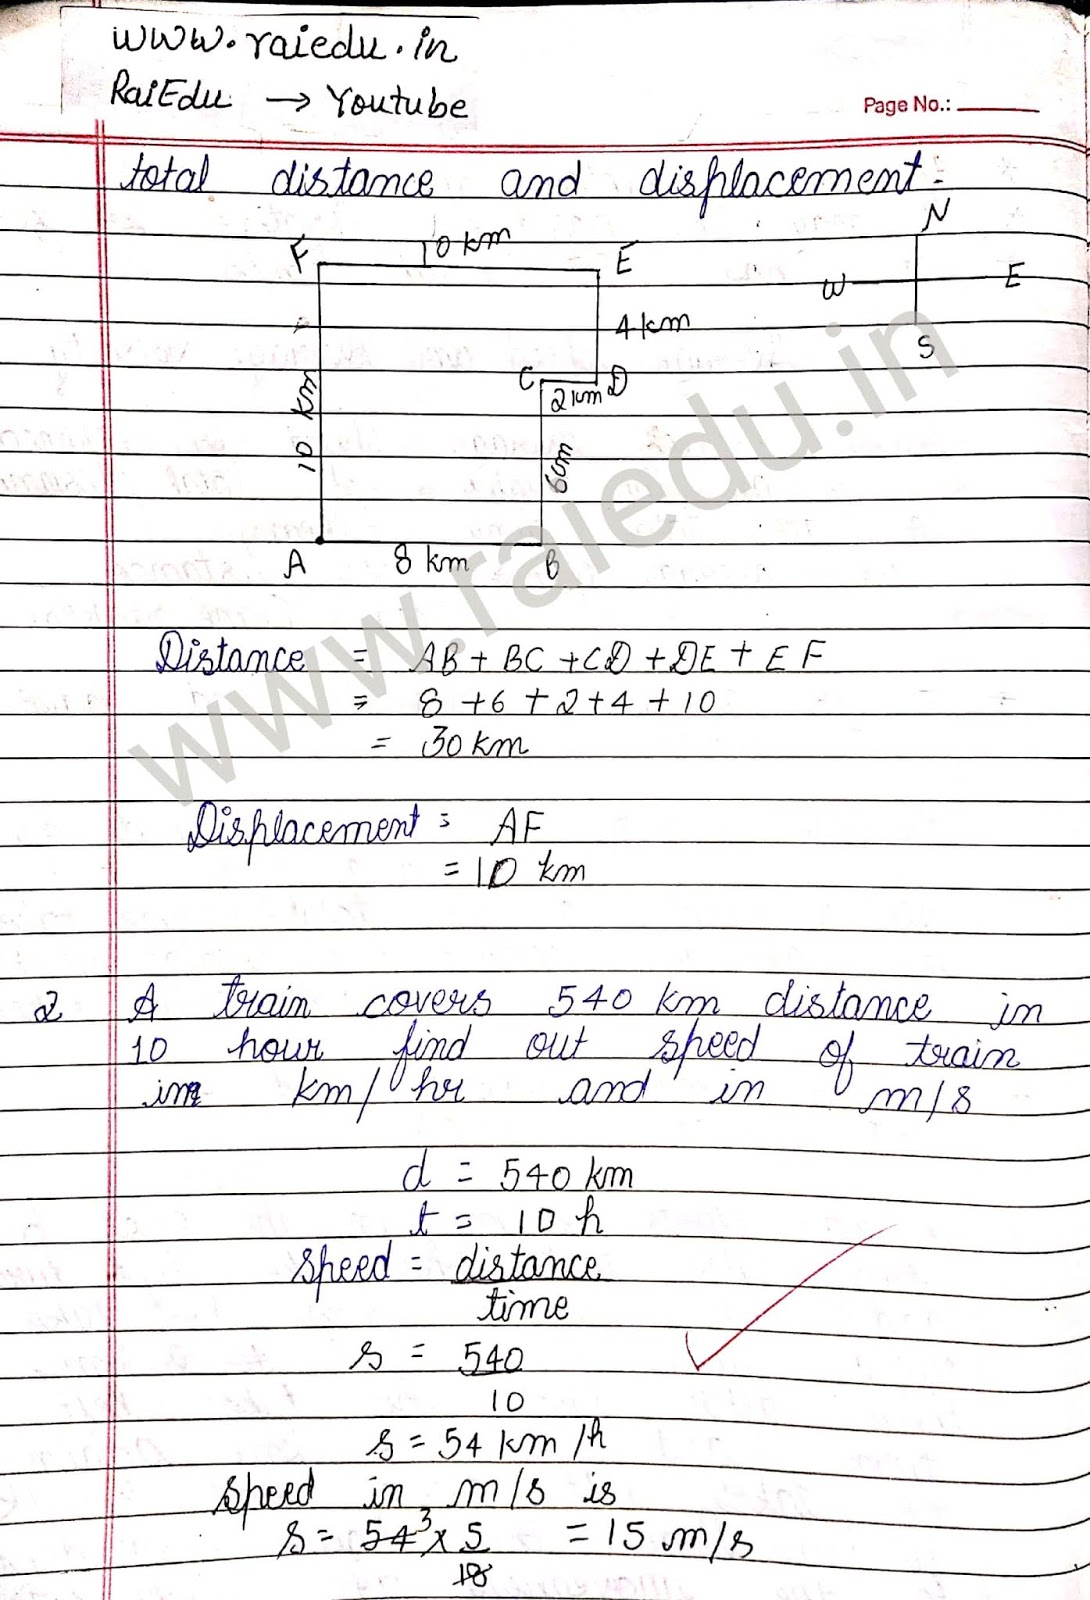 www.raiedu.in
RaiEdu → Youtube
Page No.:
total distance and displacement:
N
F 10 km E
W E
4 km
S
C D
2 km
10 km
6m
A 8 km B
www.raiedu.in
Distance = AB + BC + CD + DE + EF
= 8 + 6 + 2 + 4 + 10
= 30 km
Displacement = AF
= 10 km
2 A train covers 540 km distance in
10 hour find out speed of train
in km/hr and in m/s
d = 540 km
t = 10 h
speed = distance
time
s = 540
10
s = 54 km/h
speed in m/s is
s = 54³ x 5 = 15 m/s
18